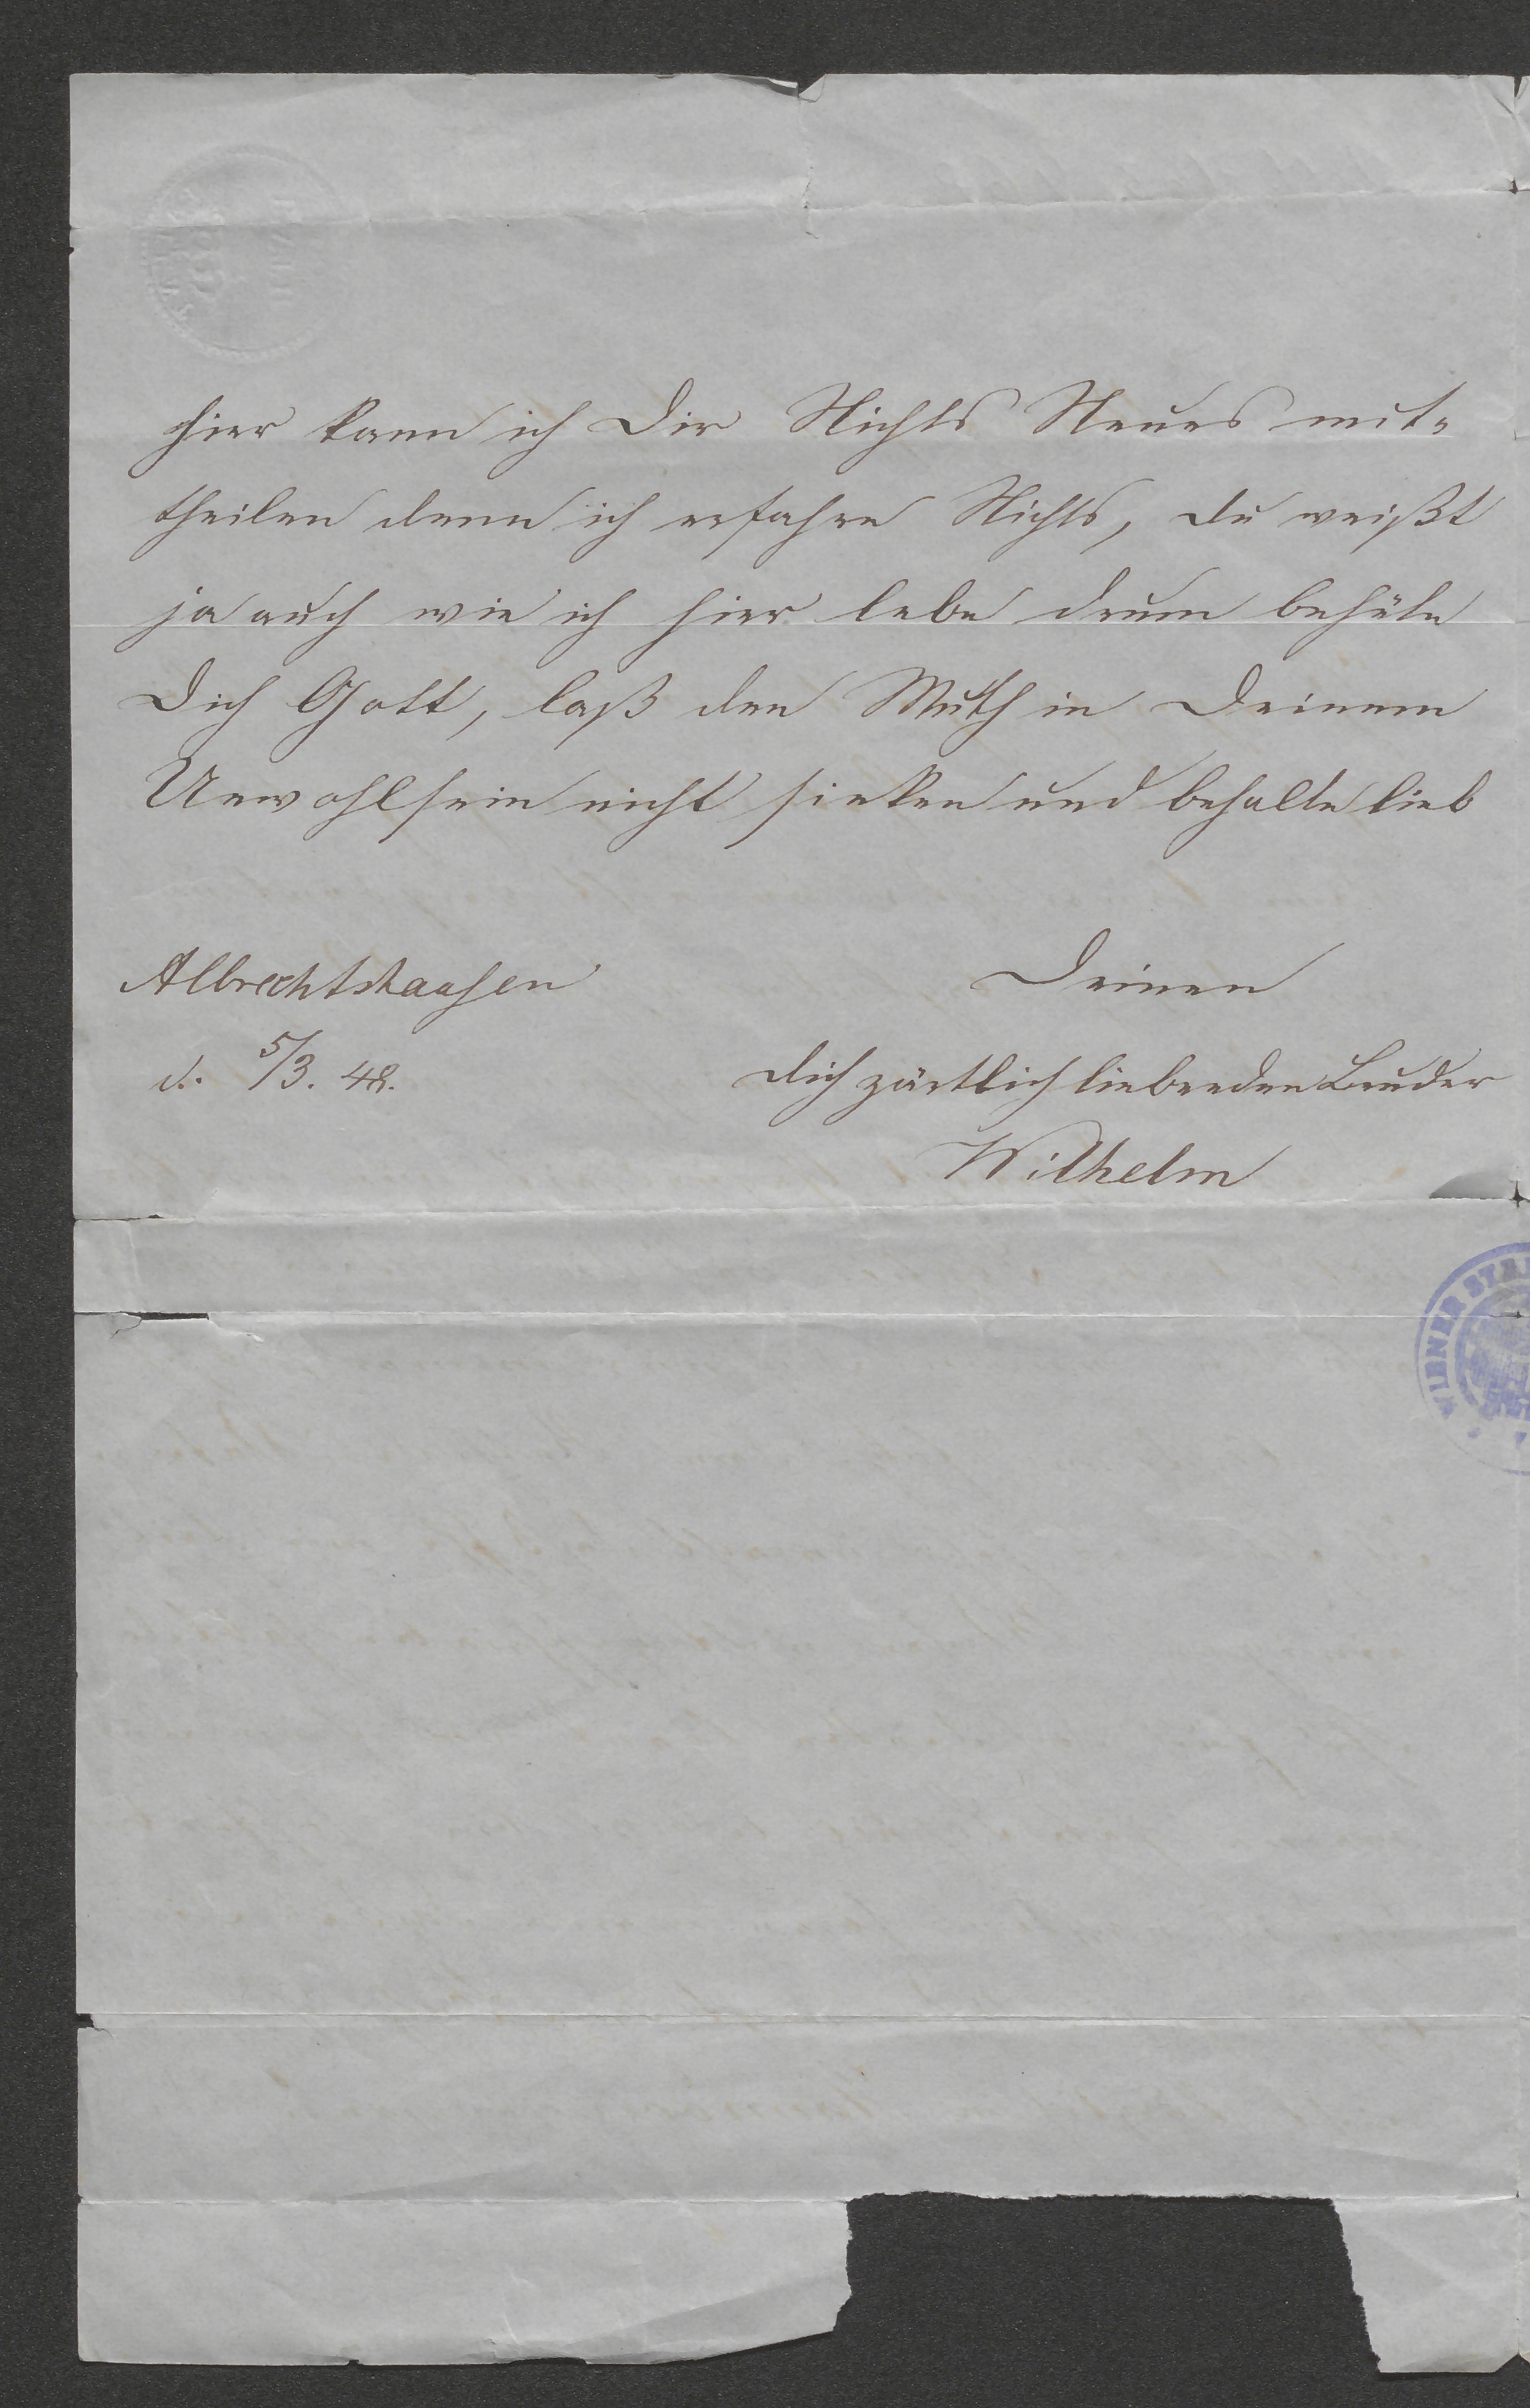 hier kann ich Dir Nichts Neues mit-
theilen denn ich erfahre Nichts, du weißt
ja auch wie ich hier lebe drum behüte
Dich Gott, laß den Muth in Deinem
Unwohlsein nicht sinken und behalte lieb
Albrechtshausen
d. 5/3. 48.
Deinen
Dich zärtlich liebenden Bruder
Wilhelm
WIENER